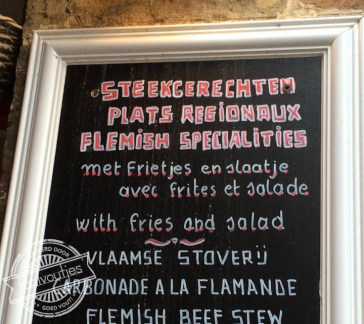 STEEKGERECHTEN
PLATS REGIONAUX
FLEMISH SPECIALITIES
met Frietjes en slaatje
avec frites et salade
with fries and salad
VLAAMSE STOVERIJ
CARBONADE A LA FLAMANDE
FLEMISH BEEF STEW